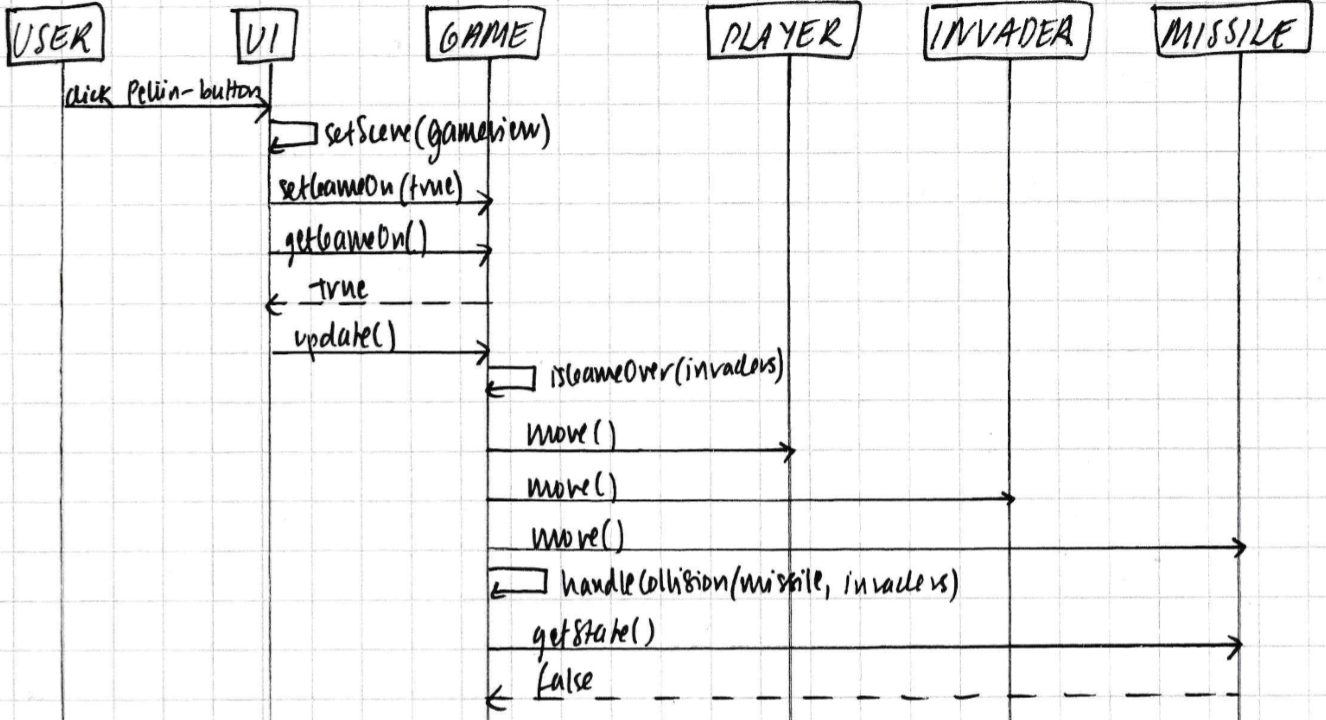 USER UI GAME PLAYER INVADER MISSILE
click Peliin-button
setScene(gameview)
setGameOn(true)
getGameOn()
true
update()
isGameOver(invaders)
move()
move()
move()
handleCollision(missile, invaders)
getState()
false